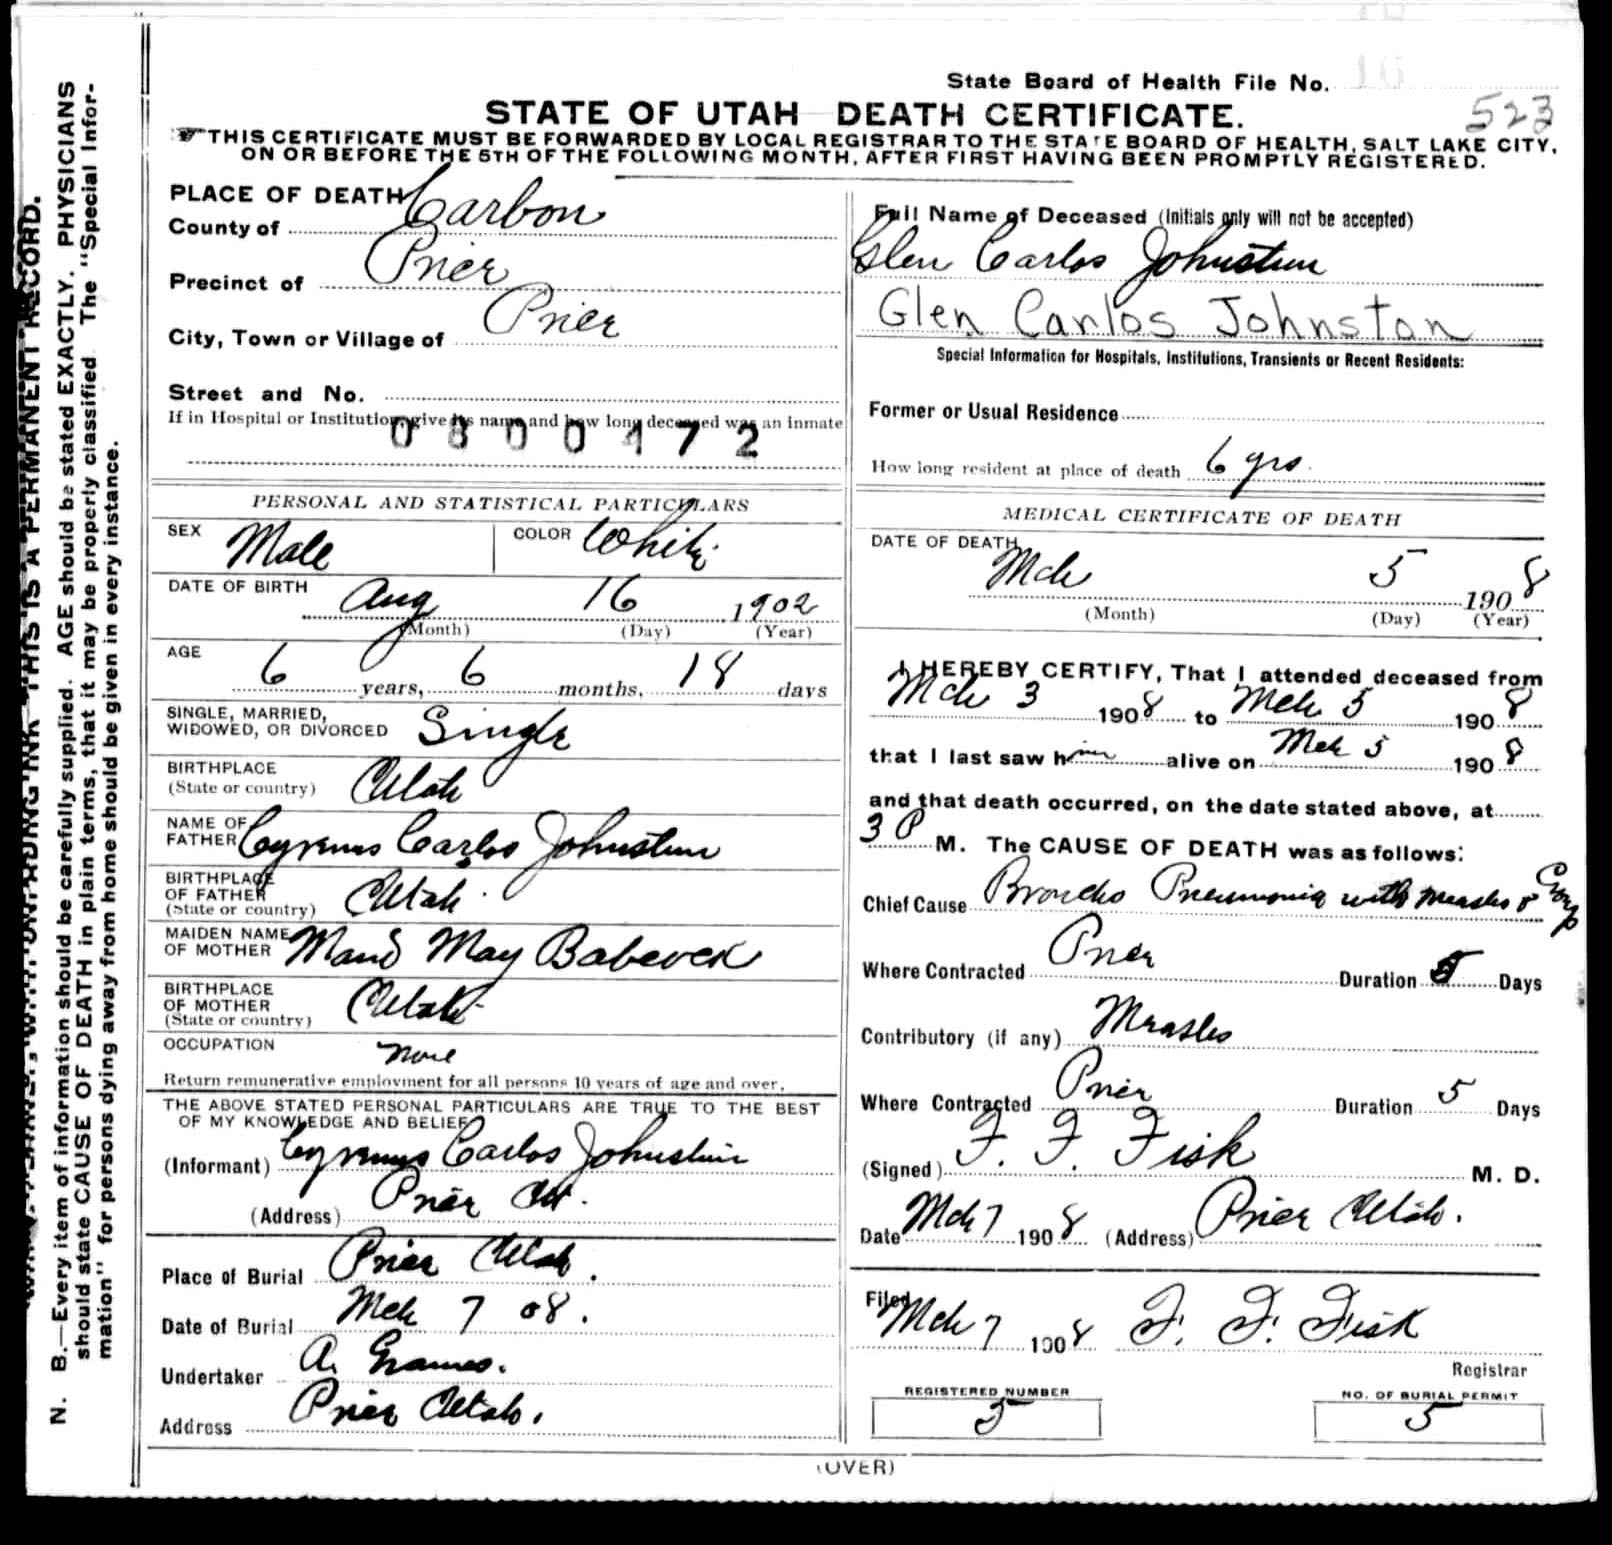 State Board of Health File No. 16
523
STATE OF UTAH DEATH CERTIFICATE.
THIS CERTIFICATE MUST BE FORWARDED BY LOCAL REGISTRAR TO THE STATE BOARD OF HEALTH, SALT LAKE CITY,
ON OR BEFORE THE 5TH OF THE FOLLOWING MONTH, AFTER FIRST HAVING BEEN PROMPTLY REGISTERED.
PLACE OF DEATH
County of Carbon
Precinct of Price
City, Town or Village of Price
Street and No.
If in Hospital or Institution, give its name and how long deceased was an inmate
0800472
PERSONAL AND STATISTICAL PARTICULARS
SEX Male COLOR White
DATE OF BIRTH Aug 16 1902
(Month) (Day) (Year)
AGE
6 years, 6 months, 18 days
SINGLE, MARRIED,
WIDOWED, OR DIVORCED Single
BIRTHPLACE
(State or country) Utah
NAME OF
FATHER Cyrenus Carlos Johnston
BIRTHPLACE
OF FATHER
(State or country) Utah
MAIDEN NAME
OF MOTHER Maud May Babcock
BIRTHPLACE
OF MOTHER
(State or country) Utah
OCCUPATION None
Return remunerative employment for all persons 10 years of age and over.
THE ABOVE STATED PERSONAL PARTICULARS ARE TRUE TO THE BEST
OF MY KNOWLEDGE AND BELIEF
(Informant) Cyrenus Carlos Johnston
(Address) Price Ut.
Place of Burial Price Utah.
Date of Burial Mch 7 08.
Undertaker A. Grames.
Address Price Utah.
Full Name of Deceased (Initials only will not be accepted)
Glen Carlos Johnston
Glen Carlos Johnston
Special Information for Hospitals, Institutions, Transients or Recent Residents:
Former or Usual Residence
How long resident at place of death 6 yrs.
MEDICAL CERTIFICATE OF DEATH
DATE OF DEATH
Mch 5 1908
(Month) (Day) (Year)
I HEREBY CERTIFY, That I attended deceased from
Mch 3 1908 to Mch 5 1908
that I last saw him alive on Mch 5 1908
and that death occurred, on the date stated above, at
3 P M. The CAUSE OF DEATH was as follows:
Chief Cause Broncho Pneumonia with measles & Croup
Where Contracted Price Duration 5 Days
Contributory (if any) Measles
Where Contracted Price Duration 5 Days
(Signed) F. F. Fisk M. D.
Date Mch 7 1908 (Address) Price Utah.
Filed Mch 7 1908 F. F. Fisk
Registrar
REGISTERED NUMBER
5
NO. OF BURIAL PERMIT
5
(OVER)
THIS IS A PERMANENT RECORD.
N. B.—Every item of information should be carefully supplied. AGE should be stated EXACTLY. PHYSICIANS
should state CAUSE OF DEATH in plain terms, that it may be properly classified The "Special Infor-
mation" for persons dying away from home should be given in every instance.